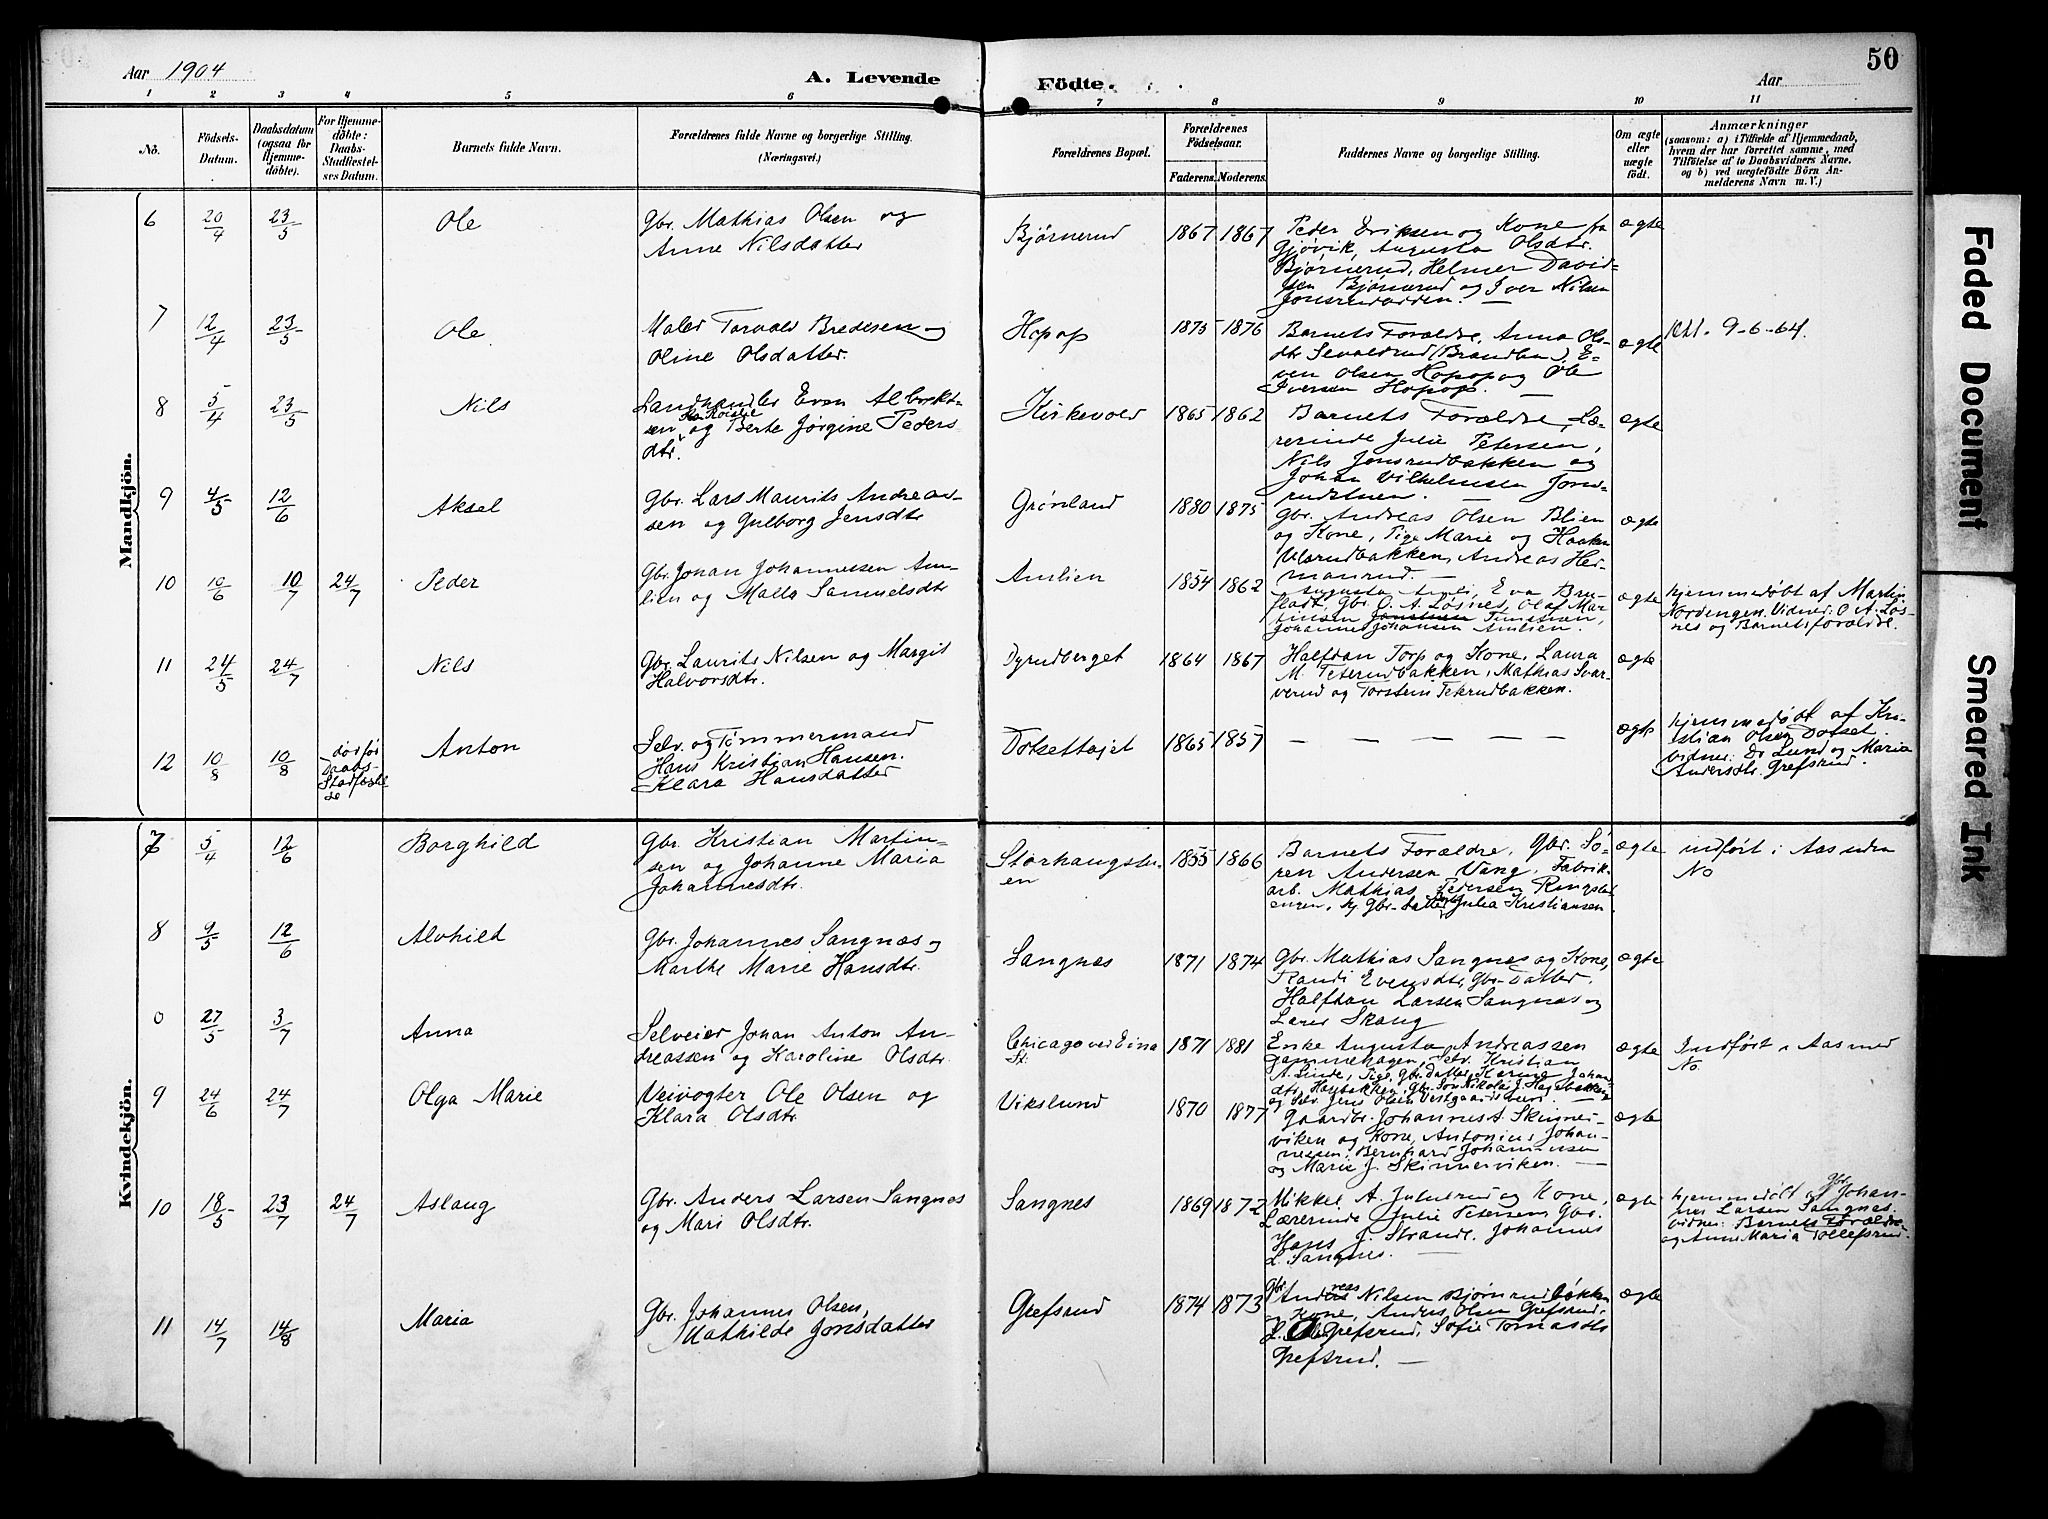 Aar 1904
A. Levende
Födte.
Aar
50
1 2 3 4 5 6 7 8 9 10 11
No.
Födsels-
Datum.
Daabsdatum
(ogsaa for
Hjemme-
döbte).
For Hjemme-
döbte:
Daabs-
Stadfæstel-
ses Datum.
Barnets fulde Navn.
Forældrenes fulde Navne og borgerlige Stilling.
(Næringsvei.)
Forældrenes Bopæl.
Forældrenes
Födselsaar.
Faderens. Moderens.
Faddernes Navne og borgerlige Stilling.
Om ægte
eller
uægte
födt.
Anmærkninger
(saasom: a) i Tilfælde af Hjemmedaab,
hvem der har forrettet samme, med
Tilföielse af to Daabsvidners Navne,
og b) ved uægtefödte Börn An-
melderens Navn m. V.)
Mandkjön.
6 20/4 23/5 Ole
Gbr. Mathias Olsen og
Anne Nilsdatter
Bjørnerud 1867 1867
Peder Eriksen og Kone fra
Gjøvik, Augusta Olsdtr.
Bjørnerud, Helmer David-
sen Bjørnerud og Iver Nilsen
ægte
7 12/4 23/5 Ole
Maler Torvald Bredesen og
Oline Olsdatter.
Hopop 1875 1876
Barnets Forældre, Anna Ols-
dtr. Sevaldrud (Brandbu), E-
ven Olsen Hopop og Ole
Iversen Hopop.
ægte
9-6-64.
8 5/4 23/5 Nils
Landhandler Even Albrekt-
sen og Berte Jørgine Peders
dtr.
Kirkevold 1865 1862
Barnets Forældre, Læ-
rerinde Julie Petersen,
Nils Jonsrudbakken og
Johan Vilhelmsen Jons-
rudstuen.
ægte
9 4/5 12/6 Aksel
Gbr. Lars Maurits Andreas-
sen og Gulborg Jensdtr.
Grønland 1880 1875
Gbr. Andreas Olsen Blien
og Kone, Pige Marie og Haaken
Ulsrudbakken, Andreas Her-
manrud.
ægte
10 10/6 10/7 24/7 Peder
Gbr. Johan Johannessen Am-
lien og Malla Samuelsdtr
Amlien 1854 1862
Augusta Amli, Eva Bru-
fladt, Gbr. O. A. Løsnes, Olaf Mar-
tinsen
Johannes Johansen Amlien.
ægte
hjemmedøbt af Martin
Nordengen. Vidner: O A. Løs-
nes og Barnets forældre.
11 24/5 24/7 Nils
Gbr. Laurits Nilsen og Margit
Halvorsdtr.
Dyrudberget 1864 1867
Halfdan Torp og Kone, Laura
M. Peterudbakken, Mathias Svar-
verud og Torstein Peterudbakken.
ægte
12 10/8 10/8
død før
Daabs-
Stadfæstel
se
Anton
Selv. og Tømmermand
Hans Kristian Hansen.
Klara Hansdatter
Dotsethøjet 1865 1857
— — — — — —
ægte
hjemmedøbt af Kri-
stian Olsen Dotset
vidner: Dr Lund og Maria
Andersdtr. Grefsrud.
Kvindekjön.
7 5/4 12/6 Borghild
Gbr. Kristian Martin-
sen og Johanne Maria
Johannesdtr.
Storhaugstu-
en
1855 1866
Barnets Forældre, Gbr. Sø-
ren Andersen Vang, Fabrik-
arb. Mathias Pedersen Ringstu-
enren, og Gbr-datter Julia Kristiansen.
ægte
indført i Aas uden
No
8 9/5 12/6 Alvhild
Gbr. Johannes Sangnæs og
Marthe Marie Hansdtr.
Sangnæs 1871 1874
Gbr. Mathias Sangnæs og Kone,
Randi Evensdtr, Gbr-Datter.
Halfdan Larsen Sangnæs og
Lærer Skaug
ægte
0 27/5 3/7 Anna
Selveier Johan Anton An-
dreassen og Karoline Olsdtr.
Chicago ved Eina
St.
1871 1881
Enke Augusta Andreassen
Dammehagen, Selv. Kristian
A. Linde, Pige, Gbr. datter, Karine Johans-
ægte
Indført i Aas med
No.
9 24/6 24/7 Olga Marie
Veivogter Ole Olsen og
Klara Olsdtr.
Vikslund 1870 1877
Gaardbr. Johannes A. Skinner-
viken og Kone, Antonius Johan-
nessen, Bernhard Johannesen
og Marie J. Skinnerviken.
ægte
10 18/5 23/7 24/7 Aslaug
Gbr. Anders Larsen Sangnæs
og Mari Olsdtr.
Sangnes 1869 1872
Mikkel A. Julsrud og Kone,
Lærerinde Julie Petersen, Gbr.
Hans J. Strande, Johannes
L. Sangnes.
ægte
hjemmedøbt af Gbr. Johan-
nes Larsen Sangnæs.
vidner: Barnets Forældre
og Anne Maria Tollefsrud.
11 14/7 14/8 Maria
Gbr. Johannes Olsen,
Mathilde Jonsdatter
Grefsrud 1874 1873
Gbr. Andreas Nilsen Bjørnerudbakken
Kone, Anders Olsen Grefsrud,
Ole Grefsrud, Sofie Tomasdtr
Grefsrud.
ægte
Faded Document
Smeared Ink